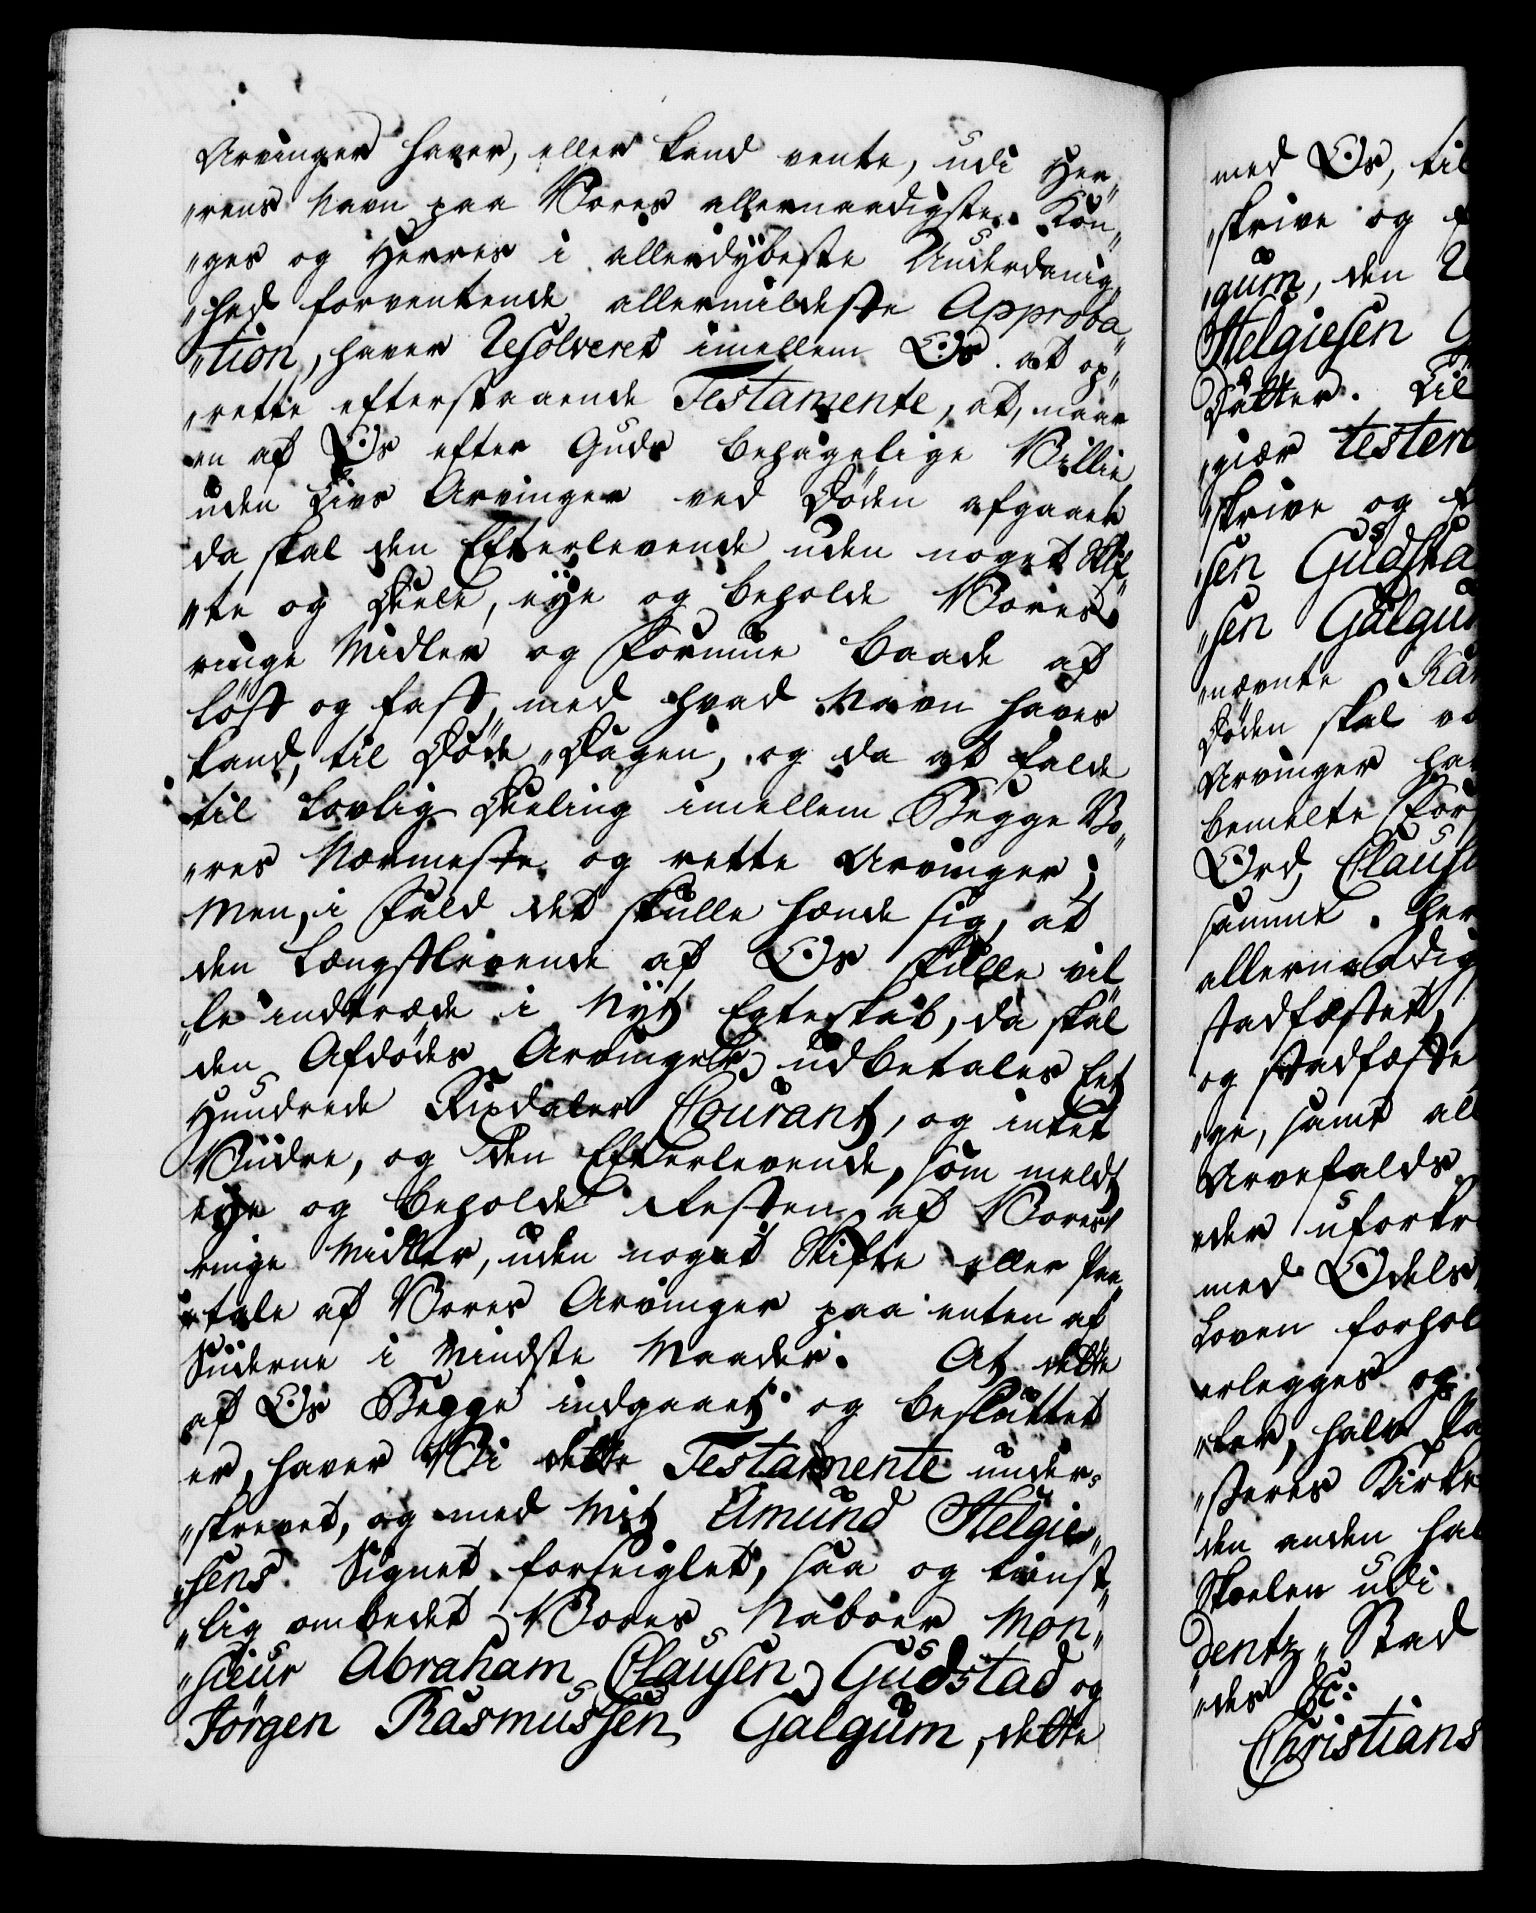 Arvinger haver, eller kand vente, udi Her„
„rens Navn paa Vores allernaadigste Kon„
„ges og Herres i allerdÿbeste Underdanig„
„hed forventende allermildeste Approba„
„tion, haver Resolveret imellem Os at op„
„rette efterstaaende Testamente, at, naar
en af Os efter Guds behagelige Villie
uden Livs Arvinger ved Døden afgaaer
da skal den Efterlevende uden noget Skif„
„te og Deele, eÿe og beholde Vores
ringe Midler og Formue baade af
løst og fast, med hvad Navn haves
kand, til Døde„Dagen, og da at falde
til Lovlig Deeling imellem Begge Vo„
„res Nærmeste og rette Arvinger;
Men, i Fald det skulle hænde sig, at
den Længstlevende af Os skulle vil„
„le indtræde i Nÿt Egteskab, da skal
den Afdødes Arvinger udbetales Eet
Hundrede Rixdaler Courant, og intet
Viidre, og den Efterlevende, som meldt
eÿe og beholde Resten af Vores
ringe Midler, uden noget Skifte eller Paa„
„tale af Vores Arvinger paa enten af
Siiderne i Mindste Maader. At dette
af Os Begge indgaaet og besluttet
er, haver Vi dette Testamente under„
„skrevet, og med Mit Amund Helgie„
„sens Signet forseiglet, saa og tienst„
„lig ombedet Vores Naboer Mon„
„sieur Abraham Clausen Gudstad og
Jörgen Rasmussen Galgum, dette
med Os, til
„skrive og
„gum, den
Helgiesen
Datter. Til
„giær testere
„skrive og
„sen Gudsta
„sen Galgum
„nævnte
Døden skal
Arvinger
bemelte For
Ord, Clausu
samme. her
allernaadig
stadfæstet,
og stadfæste
„ge, samt all
Arvefalds
„der ufortr
med Odels
Loven forhol
erlegges og
„ter, halv
„steres Kirke
den anden hal
Skoelen udi
dentz„Stad
„des &c:
Christians